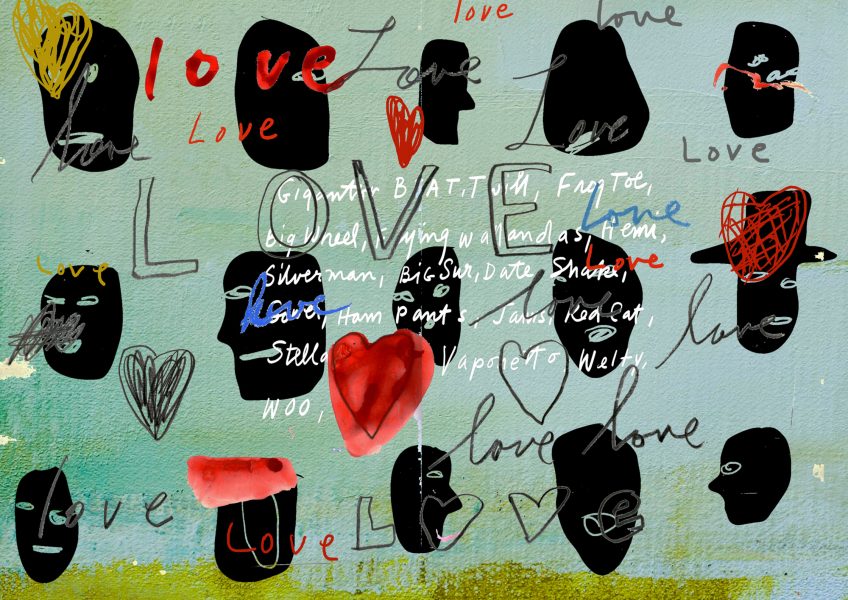 love
love
love
Love
Love
Love
love
Love
LOVE
Gigantor BEAT, Twill, FrogToe,
Love
Big Wheel, Flying wallandas, Hemi,
Love
Love
Silverman, BigSur, Date Shake,
love
love
Ham Pants, Jarvis, Red Cat,
love
Stella
Vaporetto Welty,
WOO,
love
love
love
LOVE
Love